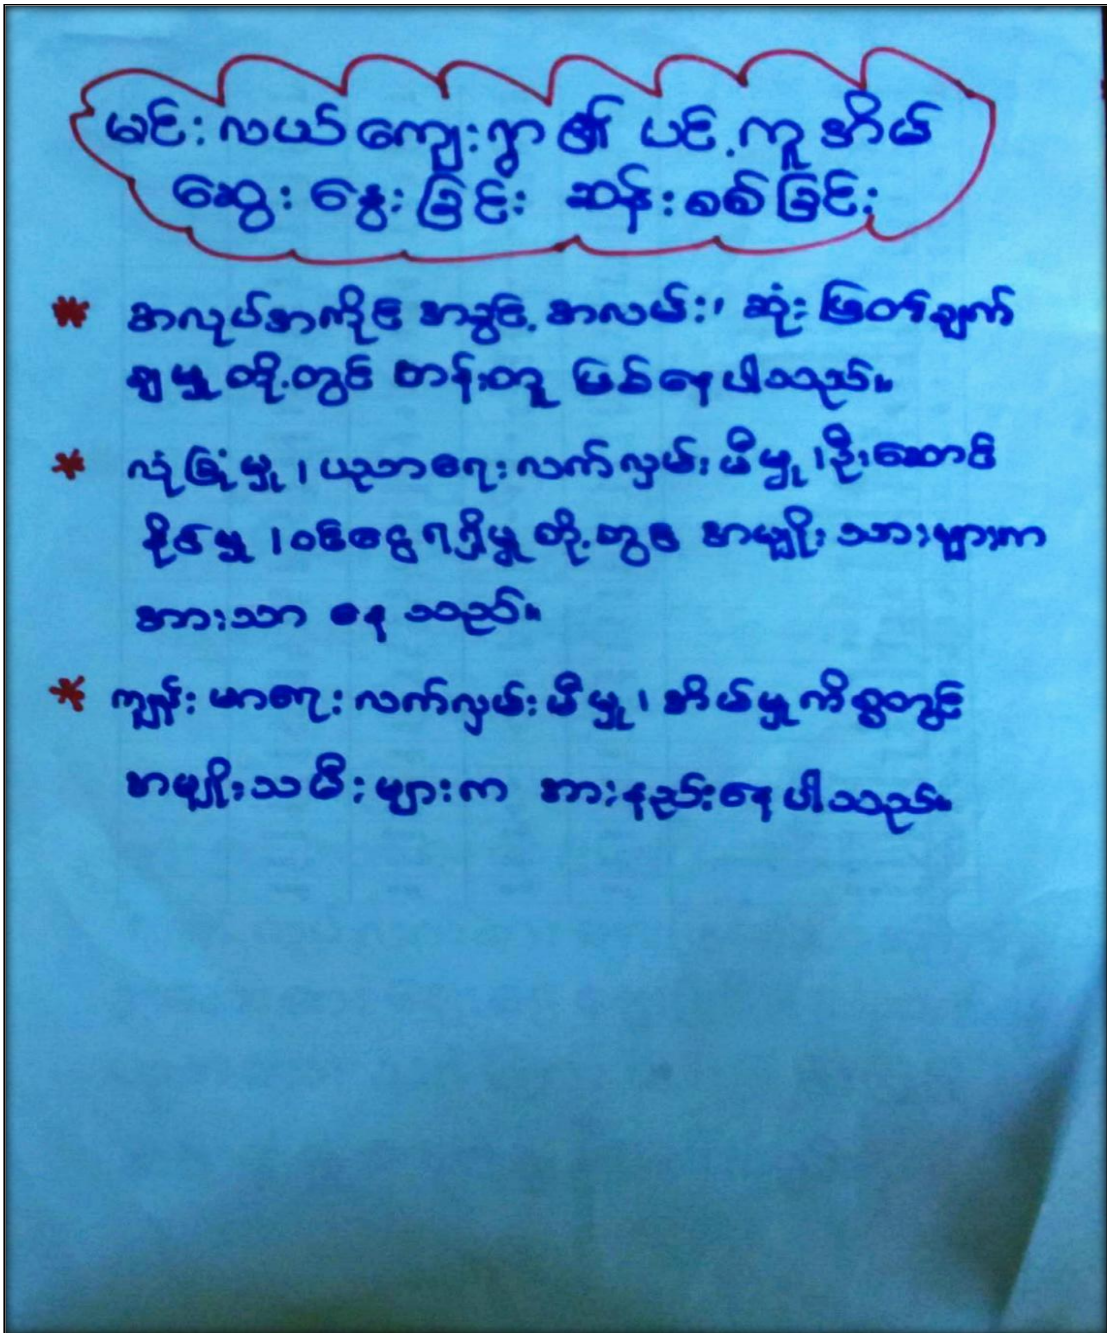 မင်းလယ်ကျေးရွာ၏ ပင့်ကူအိမ်
ဆွေးနွေးခြင်း ဆန်းစစ်ခြင်း
* အလုပ်အကိုင် အခွင့်အလမ်း၊ ဆုံးဖြတ်ချက်
ချမှု တို့တွင် တန်းတူ ဖြစ်နေပါသည်။
* လုံခြုံမှု၊ ပညာရေးလက်လှမ်းမီမှု၊ ဦးဆောင်
နိုင်မှု၊ ဝင်ငွေရရှိမှု တို့တွင် အမျိုးသားများက
အားသာ နေ သည်။
* ကျန်းမာရေးလက်လှမ်းမီမှု၊ အိမ်မှုကိစ္စတွင်
အမျိုးသမီးများက အားနည်းနေပါသည်။